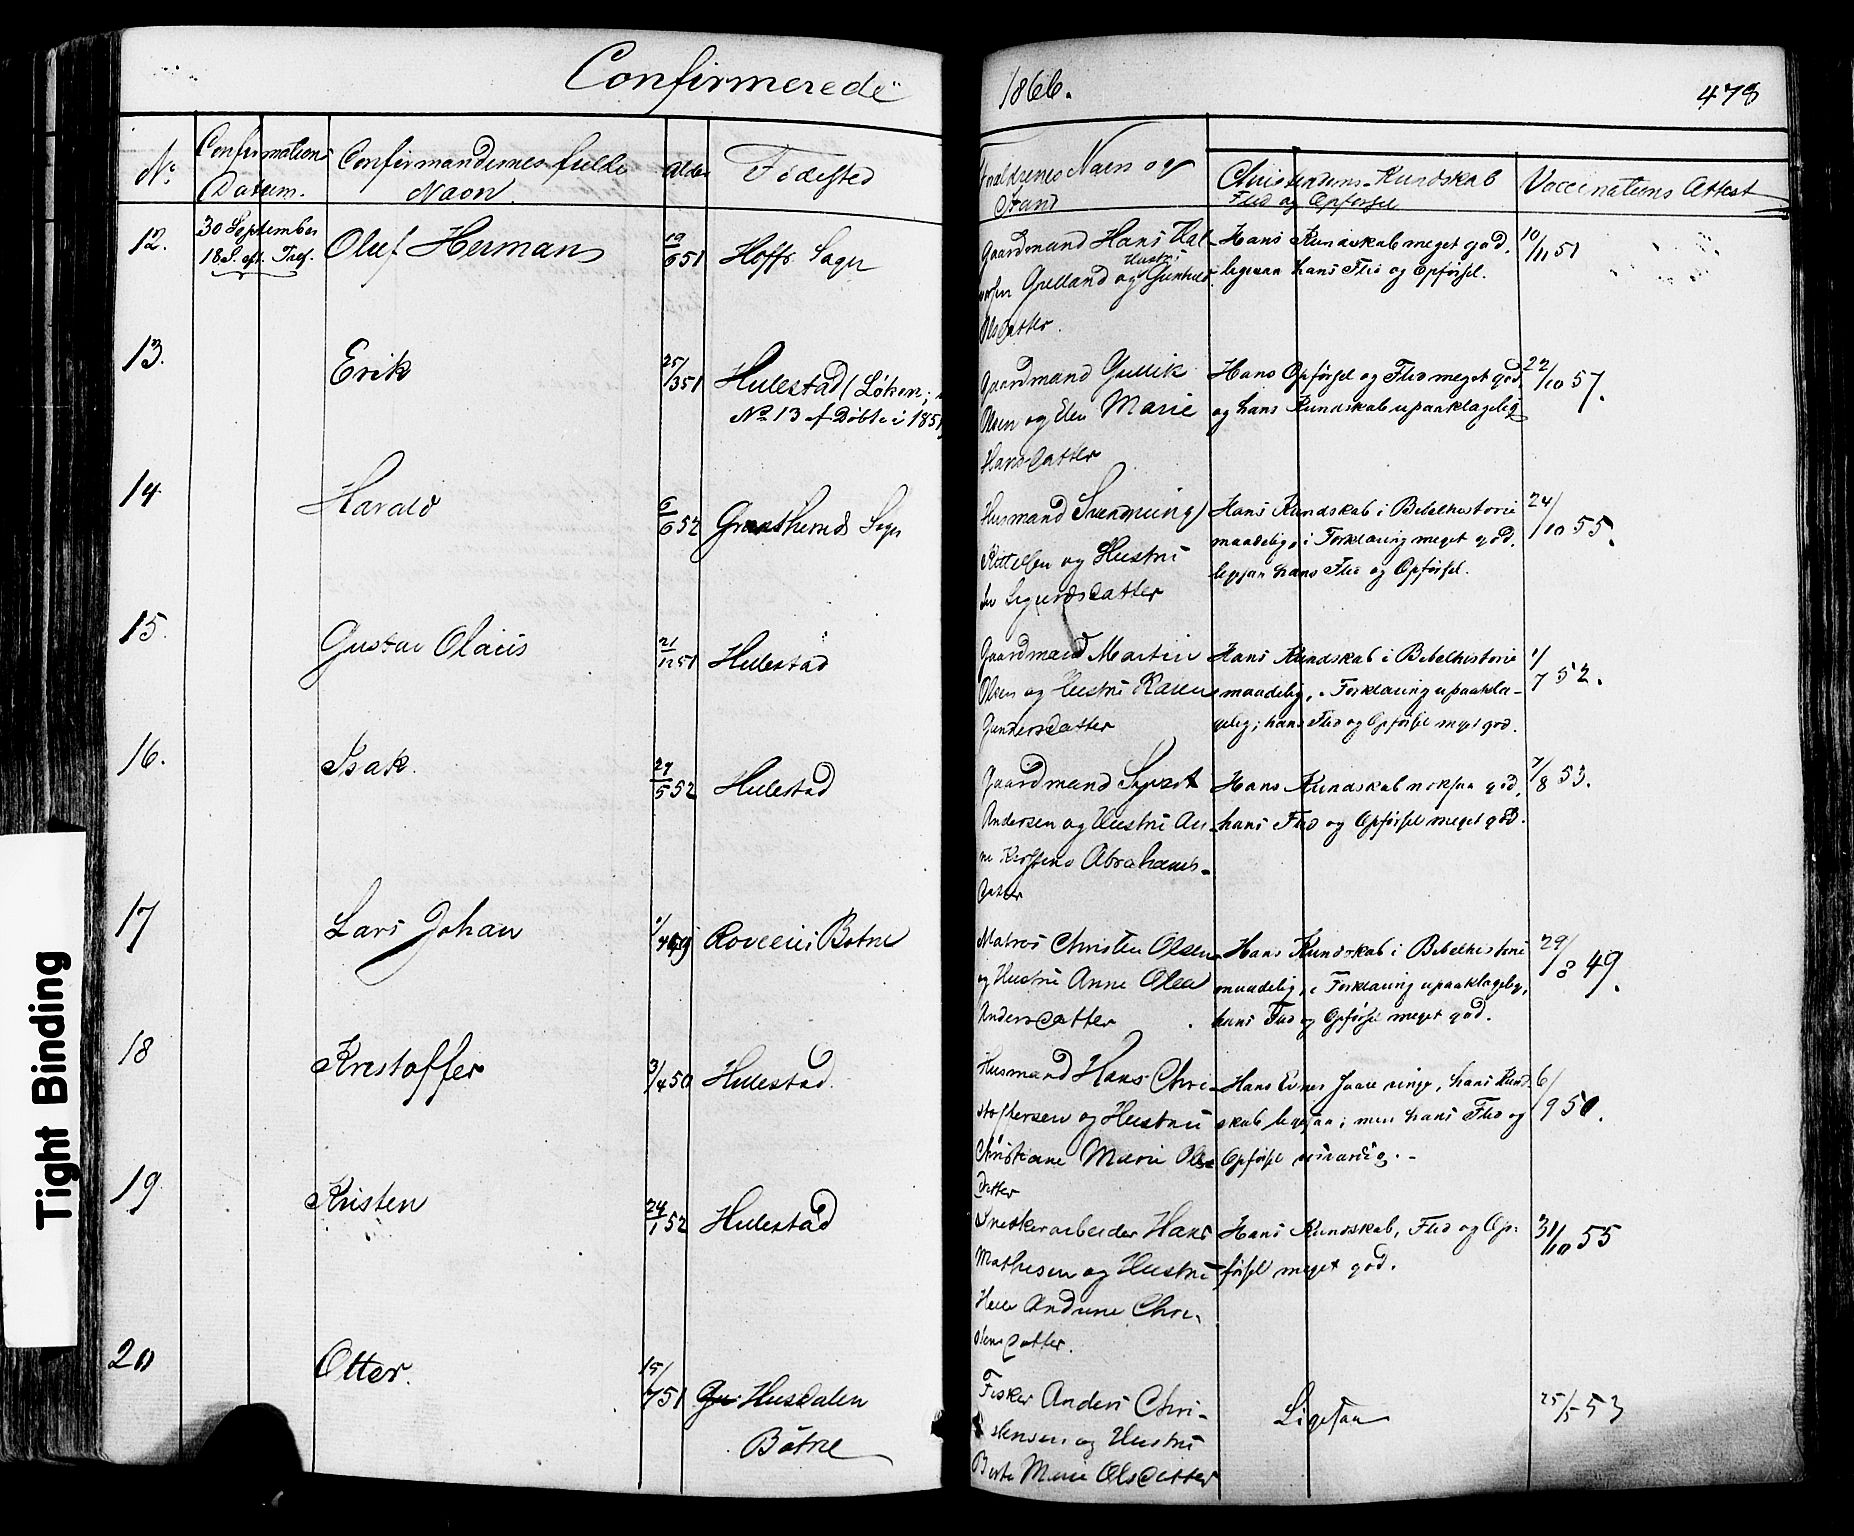 Confirmerede
1866.
478
No
Confirmations Datum.
Confirmandernes fulde Navn.
Alder
Fødested
Forældrenes Navn og Stand
Christendoms-Kundskab Flid og Opførsel
Vaccinations Attest
12.
30 September
18. S. eft. Tref.
Oluf Herman
19/6 51
Hoffs Sogn
Gaardmand Hans Hal-
vorsen Grelland og Hustri Gunhild
Olsdatter.
Hans Kundskab meget god.
ligesaa hans Flid og Opførsel.
10/11 51
13.
Erik
25/3 51
Hulestad (Løken;
No 13 af Døbte i 1851)
Gaardmand Gullik
Olsen og Elen Marie
Hansdatter
Hans Opførsel og Flid meget god,
og hans Kundskab upaaklagelig
22/10 57.
14
Harald
6/6 52
Sogn
Husmand Svenning
Kittelsen og Hustri
Sigurdsdatter
Hans Kundskab i Bibelhistorie
maadelig, i Forklaring meget god.
ligesaa hans Flid og Opførsel.
24/10 55.
15.
Gustav Olaus
21/12 51
Hulestad
Gaardmand Martin
Olsen og Hustri Karen
Gundersdatter
Hans Kundskab i Bibelhistorie
maadelig, i Forklaring upaakla-
gelig; hans Flid og Opførsel meget god.
1/7 52.
16.
Isak.
29/5 52
Hulestad
Gaardmand Syvert
Andersen og Hustri An-
ne Kirstine Abrahams-
datter
Hans Kundskab noksaa god,
hans Flid og Opførsel meget god.
7/8 53.
17
Lars Johan
1/7 49
Botne
Matros Christen Olsen
og Hustri Anne Olea
Andersdatter
Hans Kundskab i Bibelhistorie
maadelig, i Forklaring upaaklagelig,
hans Flid og Opførsel meget god.
29/8 49.
18
Kristoffer
3/4 50
Hulestad.
Husmand Hans Chri-
stoffersen og Hustri
Christiane Marie Ols-
datter
Hans Evner saare ringe, hans Kund-
skab ligesaa; men hans Flid og
Opførsel
6/9 50.
19
Kristen
24/1 52
Hulestad
Snekkerarbeider Hans
Mathisen og Hustri
Helle Andrine Chri-
stensdatter.
Hans Kundskab, Flid og Op-
førsel meget god.
31/10 55
20
Otter.
15/7 51
Husdalen
Botne
Fisker Anders Chri-
stensen og Hustri
Berte Marie Olsdatter
Ligesaa
25/5 53
Tight Binding